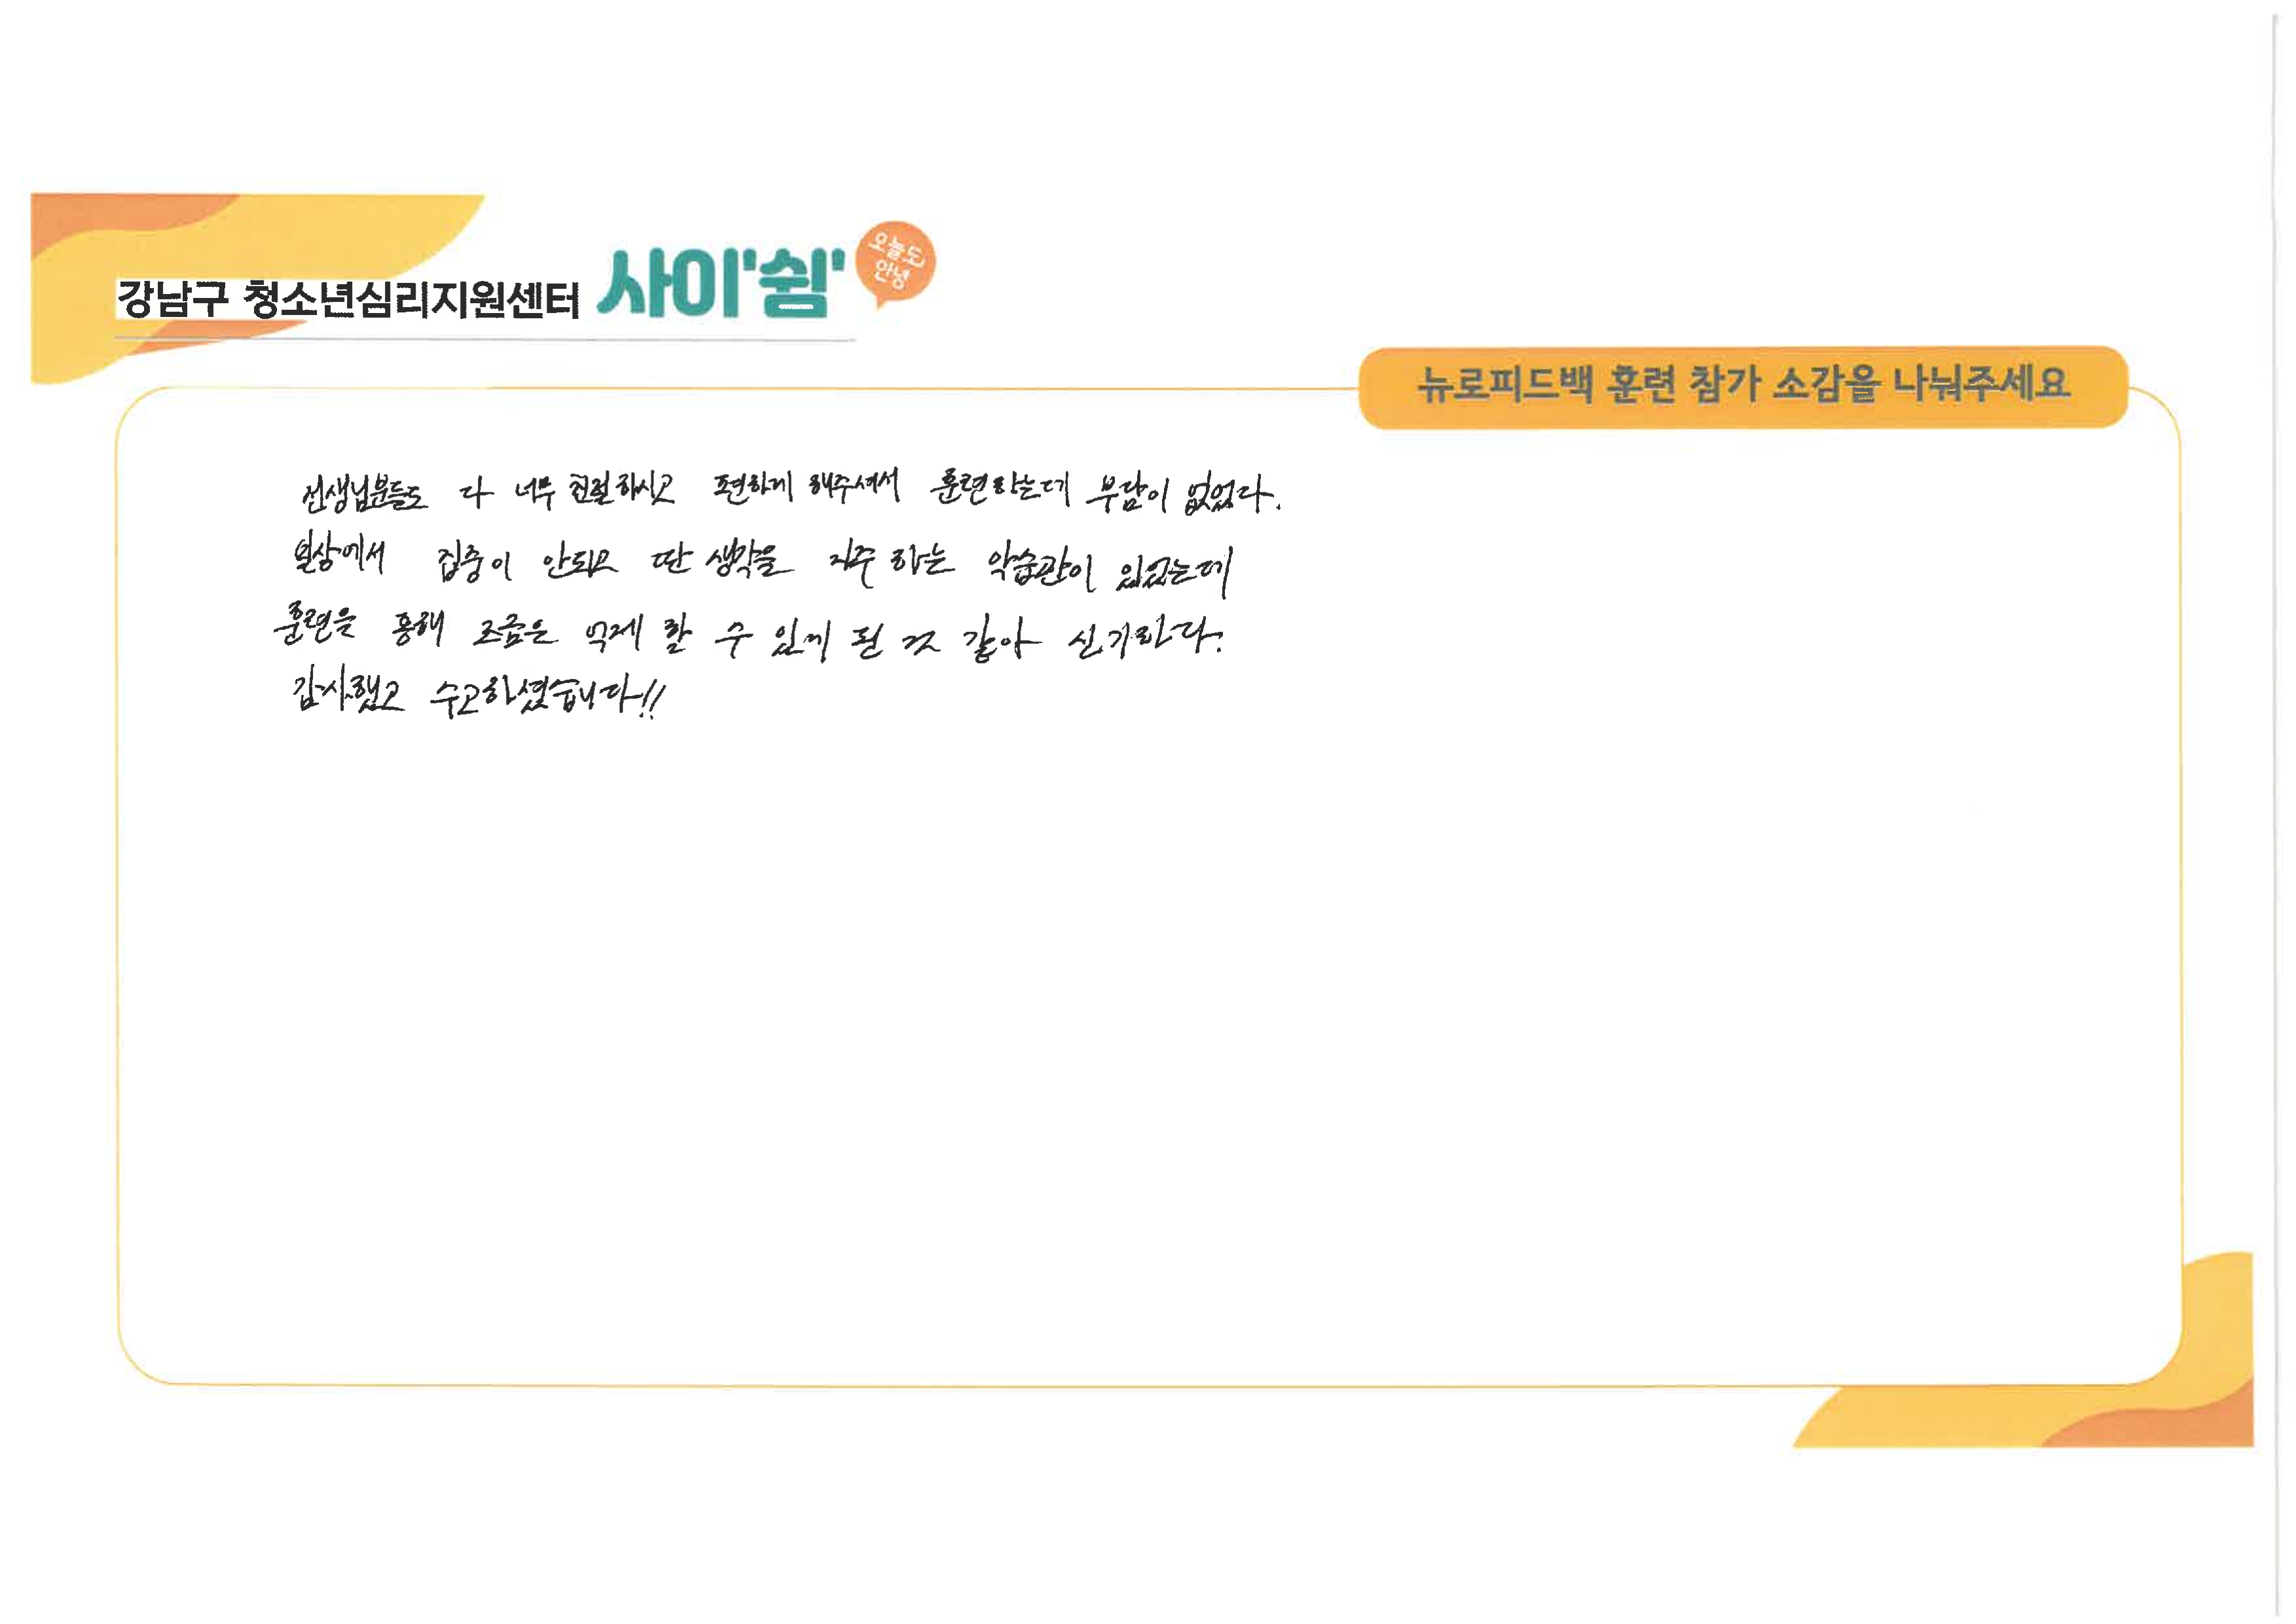 강남구 청소년심리지원센터 사이"쉼"
오늘도
안녕
뉴로피드백 훈련 참가 소감을 나눠주세요
선생님분들도 다 너무 친절하시고 편하게 해주셔서 훈련하는데 부담이 없었다.
일상에서 집중이 안되고 딴 생각을 자주 하는 악습관이 있었는데
훈련을 통해 조금은 억제 할 수 있게 된 것 같아 신기하다.
감사했고 수고하셨습니다!!